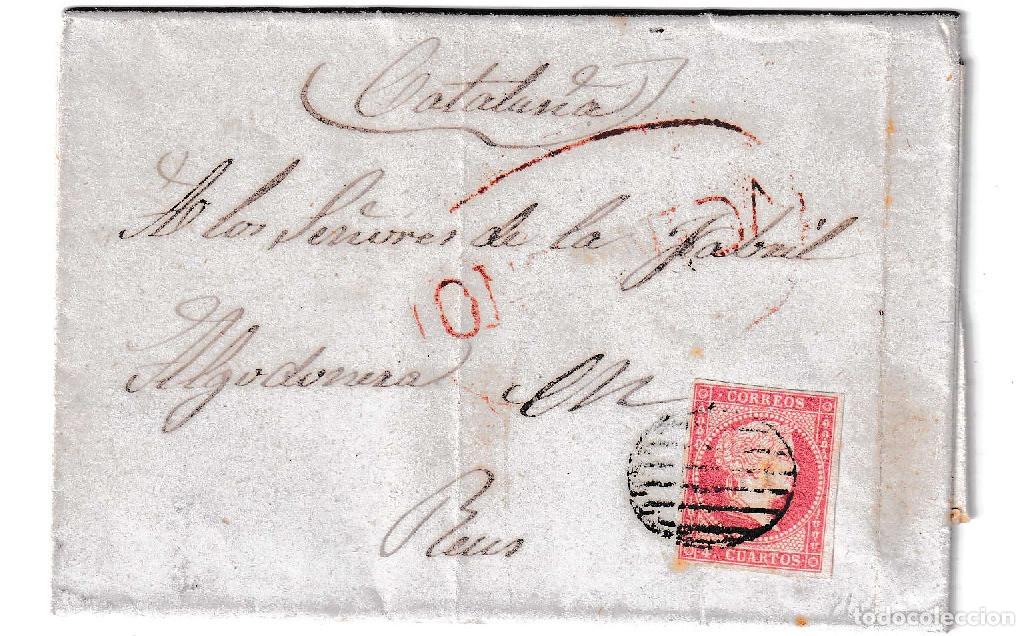 Cataluña
A los Señores de la Fabril
Algodonera en
Reus
CORREOS
4 CUARTOS
todocoleccion